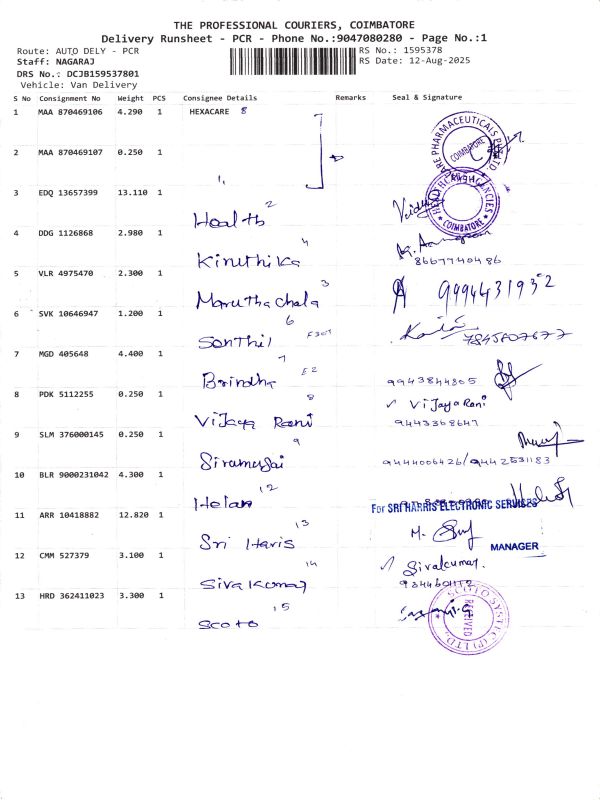 THE PROFESSIONAL COURIERS, COIMBATORE
Delivery Runsheet - PCR - Phone No.:9047080280 - Page No.:1
Route: AUTO DELY - PCR
RS No.: 1595378
Staff: NAGARAJ
RS Date: 12-Aug-2025
DRS No.: DCJB159537801
Vehicle: Van Delivery
S No Consignment No Weight PCS Consignee Details Remarks Seal & Signature
1 MAA 870469106 4.290 1 HEXACARE 8
2 MAA 870469107 0.250 1
COIMBATORE
3 EDQ 13657399 13.110 1 Health 2
COIMBATORE
4 DDG 1126868 2.980 1 Kiruthika 4
8667740486
5 VLR 4975470 2.300 1 Marutha chala 3
9994431932
6 SVK 10646947 1.200 1 Senthil 6
7845807677
7 MGD 405648 4.400 1 Brindha 7 E2
9943844805
8 PDK 5112255 0.250 1 Vijaya Rani 8
✓ Vijaya Rani
9443368647
9 SLM 376000145 0.250 1 9
9444006426/9442531183
10 BLR 9000231042 4.300 1 Helan 12
For SRI HARRIS ELECTRONIC SERVICES
11 ARR 10418882 12.820 1 Sri Haris 13
MANAGER
12 CMM 527379 3.100 1 Siva Kumar 14
✓ Sivakumar.
13 HRD 362411023 3.300 1 Scoto 15
SCOTO SYSTEC (P) LTD
RECEIVED